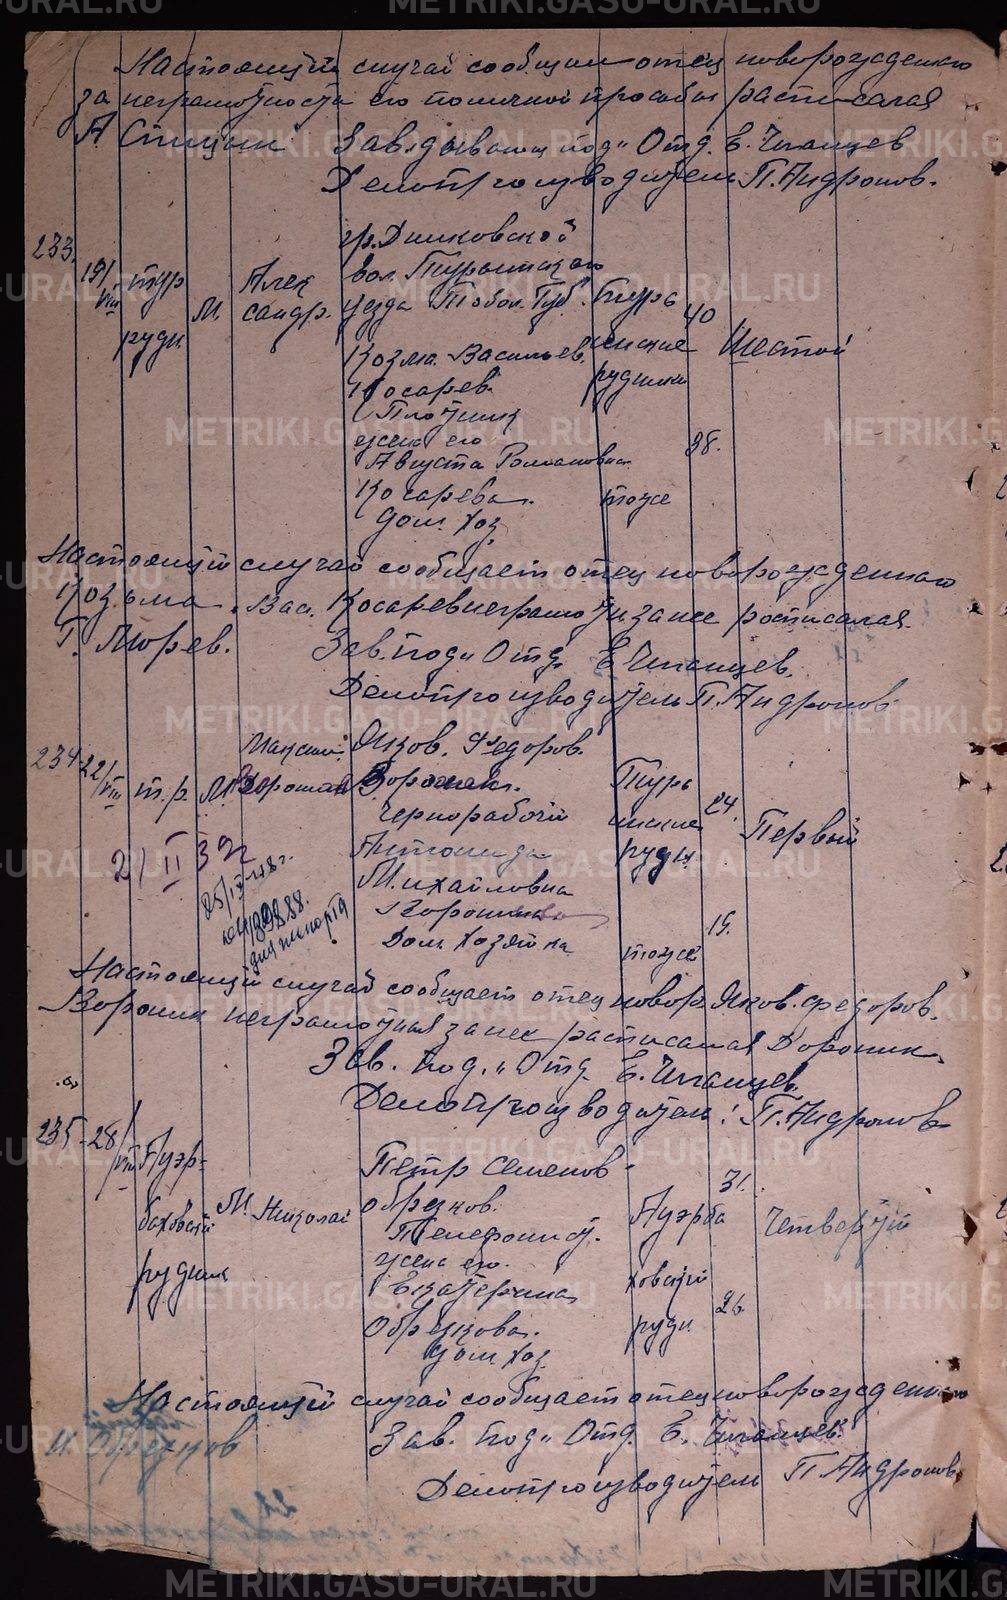 Настоящий случай сообщил отец новорожденного
за неграмотность его по личной просьбе расписался
А Спицин Завидывающ. под. Отд. Е. Чипанцев
Делопроизводитель П. Андронов.
233.
19/VIII тур рудн. М. Алек сандр.
гр. Дмковской
вол. Туринскаго
уезда Тобол. Губ.
Козма. Васильев.
Косарев.
Плотник
жена его
Августа Романовна
Косарева.
дом. хоз.
Турь
инские
рудники
тоже
40
38.
Шестой
Настоящий случай сообщает отец новорожденного
Козьма Вас. Косарев неграмотн. за нее росписался
Г. Пюрев.
Зав. под. Отд. Е. Чипанцев.
Делопроизводитель П. Андронов
234 22/VIII т. р. М.
Яков. Федоров.
Ворошак.
чернорабочий
Антонида
Михайловна
Дом. хозяйка
Турь
инские
рудн
тоже
24.
19.
Первый
21/II 39г
для паспорта
Настоящий случай сообщает отец новор. Яков. Федоров.
Воронин неграмотная за нее расписался Доронин.
Зав. под. Отд. Е. Чипанцев.
Делопроизводитель: П. Андронов
235 - 28/VIII Ауэр-
баховский
рудник
М. Николай
Петр Семенов
Обрезков.
Телефонист.
жена его.
Екатерина
Обрезкова.
дом. хоз.
Ауэрба
ховский
рудн.
31.
26.
Четвертый
Настоящий случай сообщает отец новорожденного
Зав. под. Отд. Е. Чипанцев.
Обрезков
Делопроизводитель П Андронов
METRIKI.GASO-URAL.RU